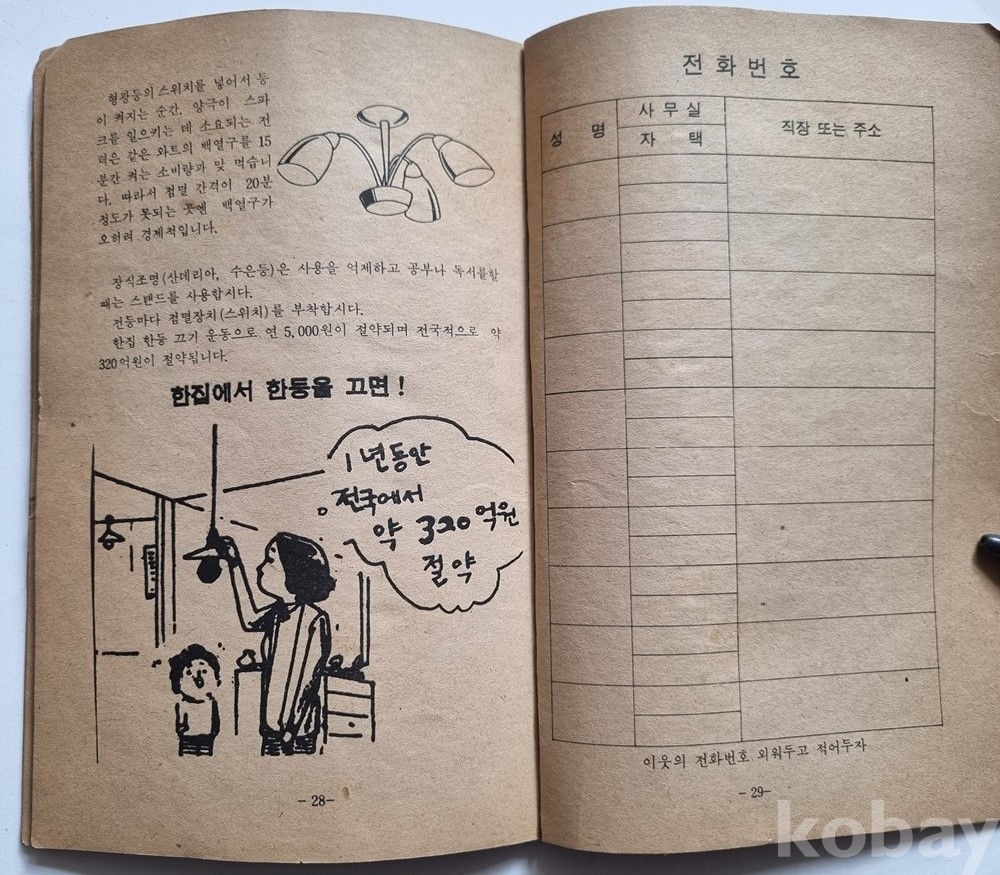 형광등의 스위치를 넣어서 등
이 켜지는 순간. 양극이 스파
크를 일으키는 데 소요되는 전
력은 같은 와트의 백열구를 15
분간 켜는 소비량과 맞 먹습니
다. 따라서 점멸 간격이 20분
정도가 못되는 곳엔 백열구가
오히려 경제적입니다.
장식조명(산데리아, 수은등)은 사용을 억제하고 공부나 독서를할
때는 스탠드를 사용합시다.
전등마다 점멸장치(스위치)를 부착합시다.
한집 한등 끄기 운동으로 연 5,000원이 절약되며 전국적으로 약
320억원이 절약됩니다.
한집에서 한등을 끄면!
1년동안
전국에서
약 320억원
절약
-28-
전화번호
성 명
사무실
자 택
직장 또는 주소
이웃의 전화번호 외워두고 적어두자
-29-
kobay